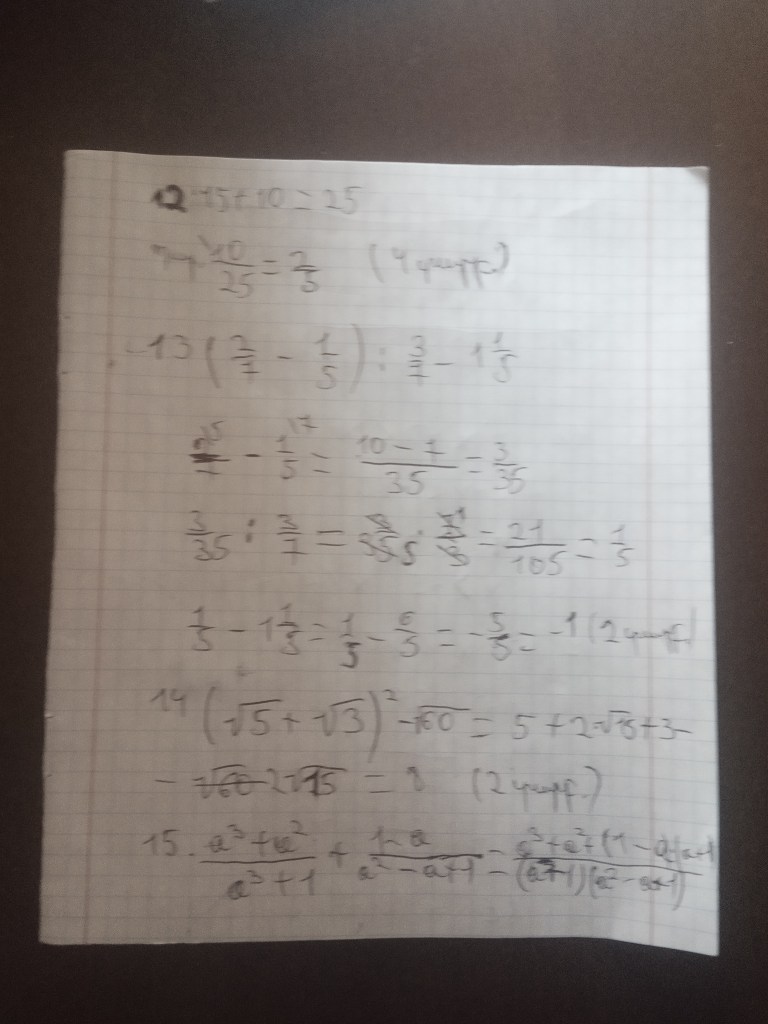 12 15+10=25
10/25 = 2/5
13 (2/7 - 1/5) : 3/7 - 1 1/5
- 1/5 = (10-7)/35 = 3/35
3/35 : 3/7 = 3/35 · 7/3 = 21/105 = 1/5
1/5 - 1 1/5 = 1/5 - 6/5 = -5/5 = -1
14 (√5 + √3)² - √60 = 5 + 2√15 + 3 -
- 2√15 = 8
15. (a³+a²)/(a³+1) + (1-a)/(a²-a+1) = (a³+a²+(1-a)(a+1)/((a+1)(a²-a+1)